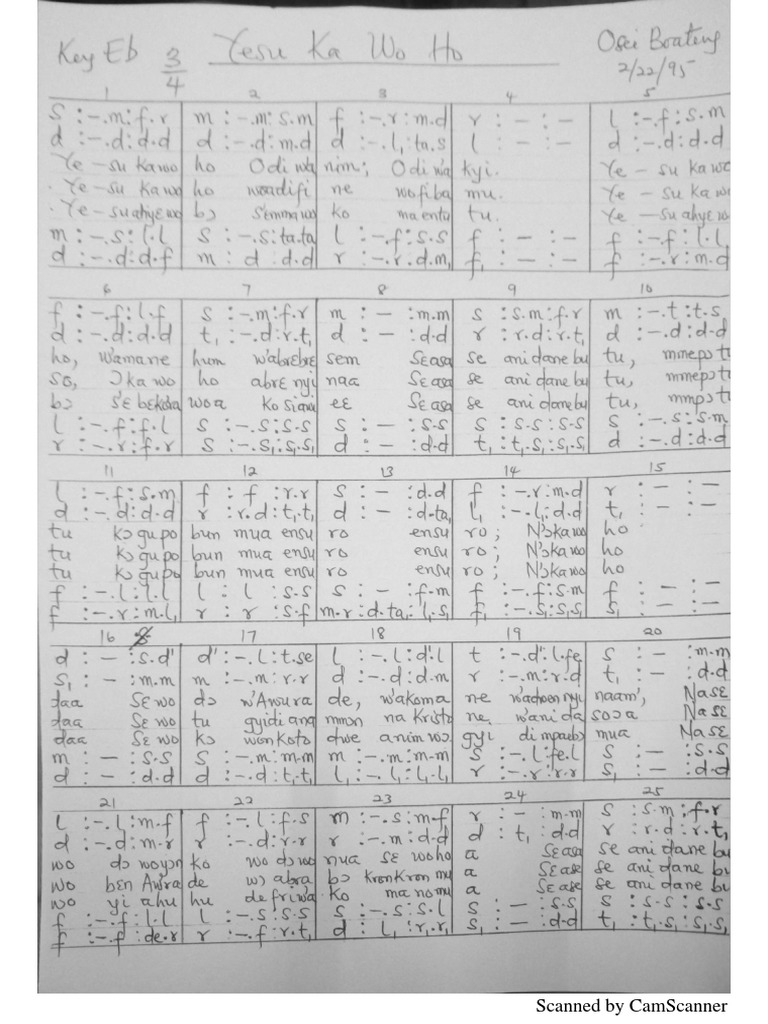 Key Eb 3/4 Yesu Ka Wo Ho Osei Boateng
2/22/95
1 2 3 4 5
s :-.m:f.r | m :-.m:s.m | f :-.r:m.d | r :-:- | l :-.f:s.m
d :-.d:d.d | d :-.d:m.d | d :-.l₁:ta.s | l :-:- | d :-.d:d.d
Ye-su ka wo ho Odi wa nim; Odi w'a kyi. Ye-su ka wo
Ye-su ka wo ho woadifi ne wofiba mu. Ye-su ka wo
Ye-su ahyɛ wo bɔ Sɛmma wo ko ma entu tu. Ye-su ahyɛ w
m :-.s:l.l | s :-.s:ta.ta | l :-.f:s.s | f :-:- | f :-.f:l.l
d :-.d:d.f | m : d : d.d | r :-.r:d.m, | f₁ :-:- | f :-.r:m.d
6 7 8 9 10
f :-.f:l.f | s :-.m:f.r | m :-:m.m | s :s.m:f.r | m :-.t:t.s
d :-.d:d.d | t₁ :-.d:r.t₁ | d :-:d.d | r :r.d:r.t₁ | d :-.d:d.d
ho, wamane hum wabrɛbrɛ sem Sɛasa se ani dane bu tu, mmepɔ tu
so, Ɔka wo ho abrɛ nyi naa Sɛasa se ani dane bu tu, mmepɔ tu
bɔ woa ee Sɛasa se ani dane bu tu, mmpɔ tu
l :-.f:f.l | s :-.s:s.s | s :-:s.s | s :s.s:s.s | s :-.s:s.m
r :-.r:f.r | s :-.s₁:s₁.s₁ | d :-:d.d | t₁ :t₁.s₁:s₁.s₁ | d :-.d:d.d
11 12 13 14 15
l :-.f:s.m | f : f :r.r | s :-:d.d | f :-.r:m.d | r :-:-
d :-.d:d.d | r :r.d:t₁.t₁ | d :-:d.ta₁ | l₁ :-.l₁:d.d | t₁ :-:-
tu kɔ gu po bun mua ensu ro ensu ro; N'ɔka wo ho
tu kɔ gu po bun mua ensu ro ensu ro; N'ɔka wo ho
tu kɔ gu po bun mua ensu ro ensu ro; N'ɔka wo ho
f :-.l:l.l | l : l :s.s | s :-:f.m | f :-.f:s.m | f :-:-
f :-.r:m.l₁ | r : r :s.f | m.r:d.ta₁:l₁.s₁ | f₁ :-.s₁:s₁.s₁ | s₁ :-:-
16 17 18 19 20
d :-:s.d' | d' :-.l:t.se | l :-.l:d'.l | t :-.d':l.fe | s :-:m.m
s₁ :-:m.m | m :-.m:r.r | d :-.d:d.m | r :-.m:r.d | t₁ :-:d.d
daa Sɛ wo dɔ w'Awura de, w'akoma ne naam', Na sɛ
daa Sɛ wo tu gyidi ana mmɔn na Kristo ne, w'ani da soɔa Na sɛ
daa Sɛ wo kɔ wonkoto dwe anim wɔ gyi dimpaebɔ mua Na sɛ
m :-:s.s | s :-.m:m.m | m :-.m:m.m | s :-.l:fe.l | s :-:s.s
d :-:d.d | d :-.d:t₁.t₁ | l₁ :-.l₁:l₁.l₁ | r :-.r:r.r | s₁ :-:d.d
21 22 23 24 25
l :-.l:m.f | f :-.l:f.s | m :-.s:m.f | r :-:m.m | s :s.m:f.r
d :-.d:m.r | r :-.d:r.r | r :-.m:d.d | d : t₁ :d.d | r :r.d:r.t₁
wo dɔ woyɔn ko wo dɔ wo nua sɛ woho a Sɛasa se ani dane bu
wo bɛn Awura de wɔ abra bɔ kronkron mu a Sɛase se ani dane bu
wo yi ahu hu de friwa ko ma nomu a Sɛase se ani dane bu
f :-.f:l.l | l :-.s:s.s | s :-.s:s.l | s :-:s.s | s :s.s:s.s
f :-.f:de.r | r :-.f:r.t₁ | d : l₁ :r₁.r₁ | s₁ :-:d.d | t₁ :t₁.s₁:s₁.s₁
Scanned by CamScanner